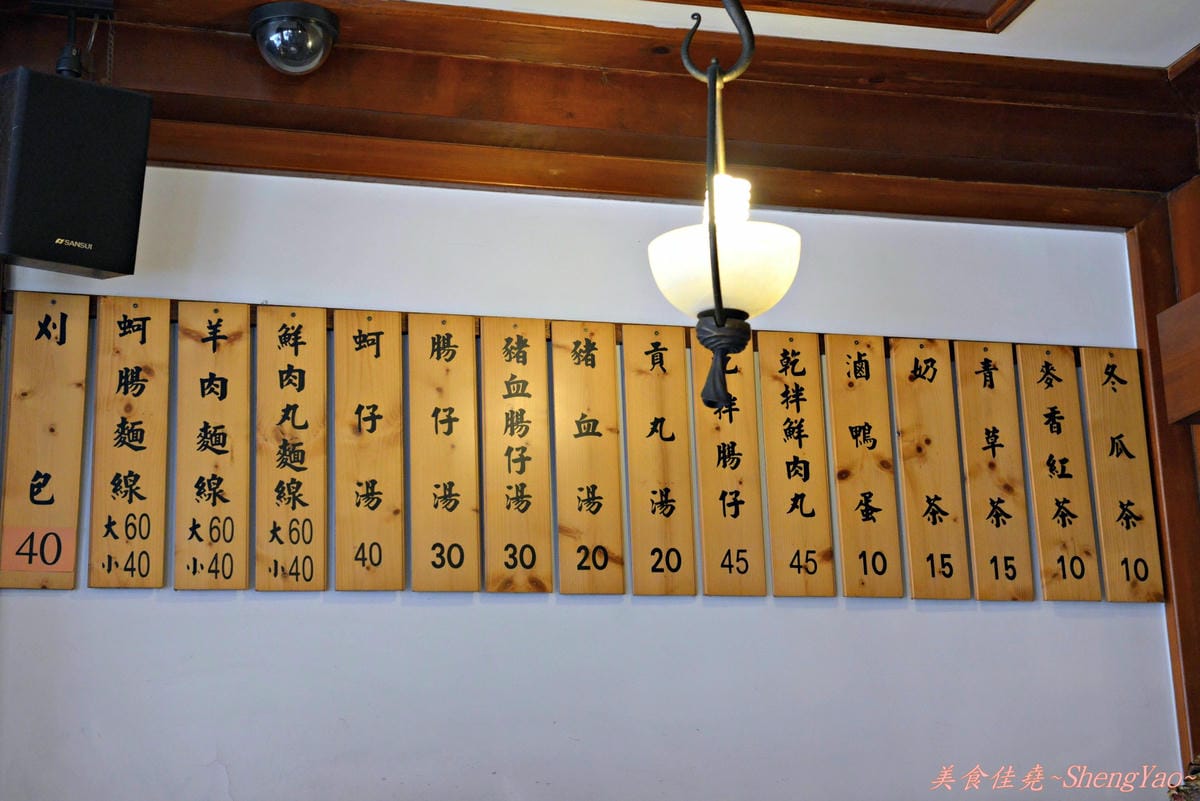 SANSUI
刈包
40
蚵腸麵線
大60
小40
羊肉麵線
大60
小40
鮮肉丸麵線
大60
小40
蚵仔湯
40
腸仔湯
30
豬血腸仔湯
30
豬血湯
20
貢丸湯
20
拌腸仔
45
乾拌鮮肉丸
45
滷鴨蛋
10
奶茶
15
青草茶
15
麥香紅茶
10
冬瓜茶
10
美食佳堯~ShengYao~